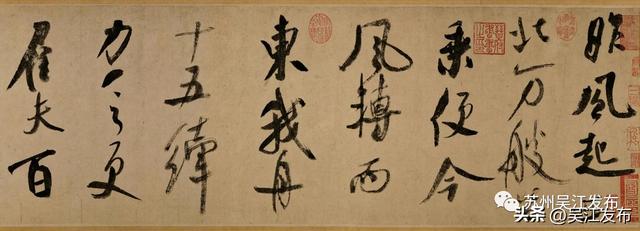 昨風起
北万艘
乘便今
風轉而
東我舟
十五縴
力乏更
雇夫百
苏州吴江发布
头条 @吴江发布